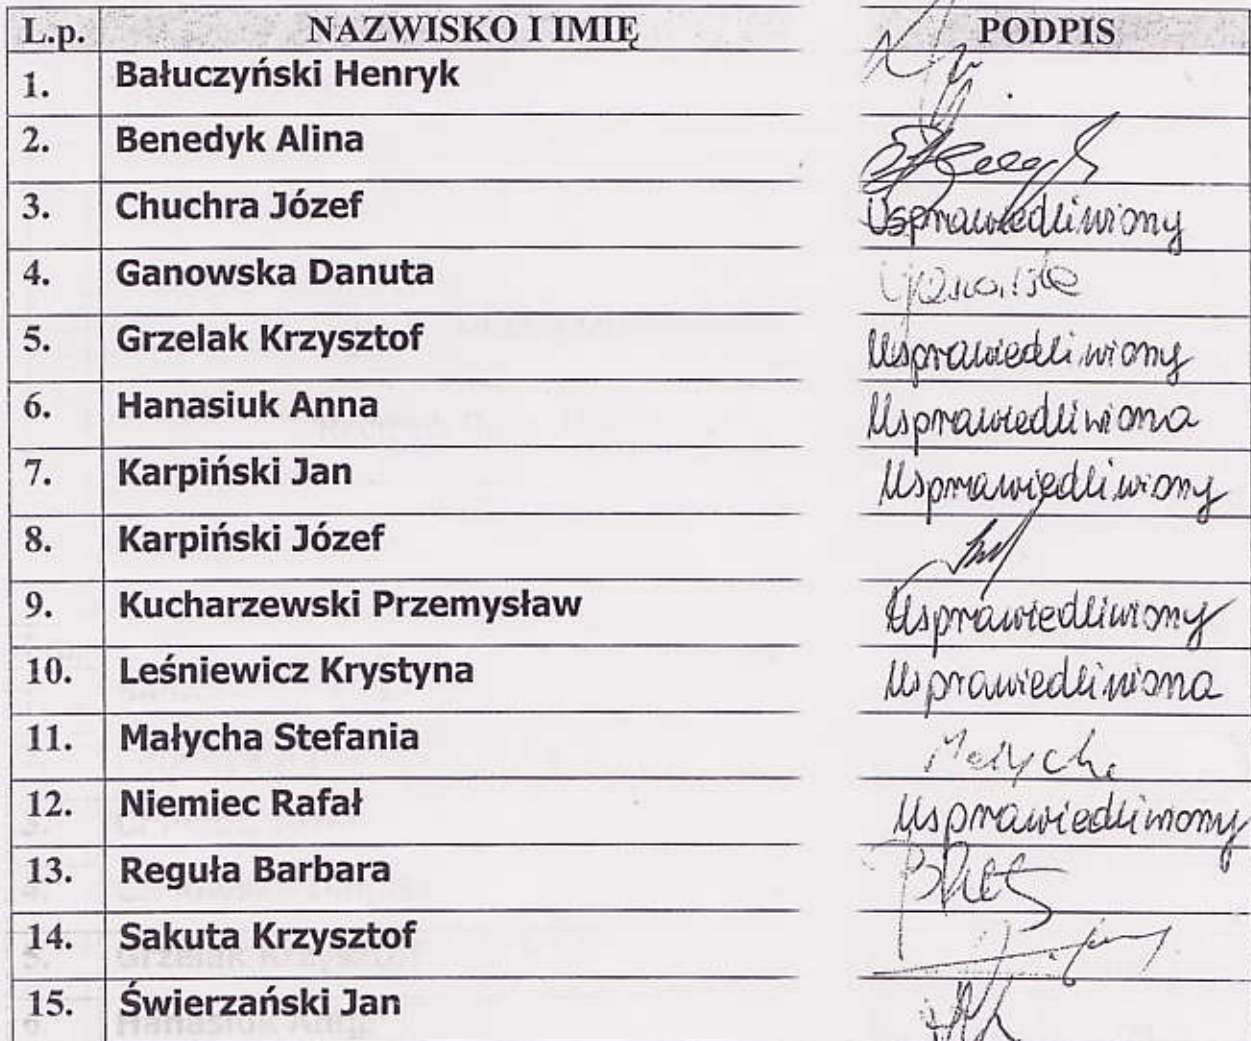 L.p. NAZWISKO I IMIĘ PODPIS
1. Bałuczyński Henryk
2. Benedyk Alina
3. Chuchra Józef Usprawiedliwiony
4. Ganowska Danuta
5. Grzelak Krzysztof Usprawiedliwiony
6. Hanasiuk Anna Usprawiedliwiona
7. Karpiński Jan Usprawiedliwiony
8. Karpiński Józef
9. Kucharzewski Przemysław Usprawiedliwiony
10. Leśniewicz Krystyna Usprawiedliwiona
11. Małycha Stefania Małycha
12. Niemiec Rafał Usprawiedliwiony
13. Reguła Barbara
14. Sakuta Krzysztof
15. Świerzański Jan